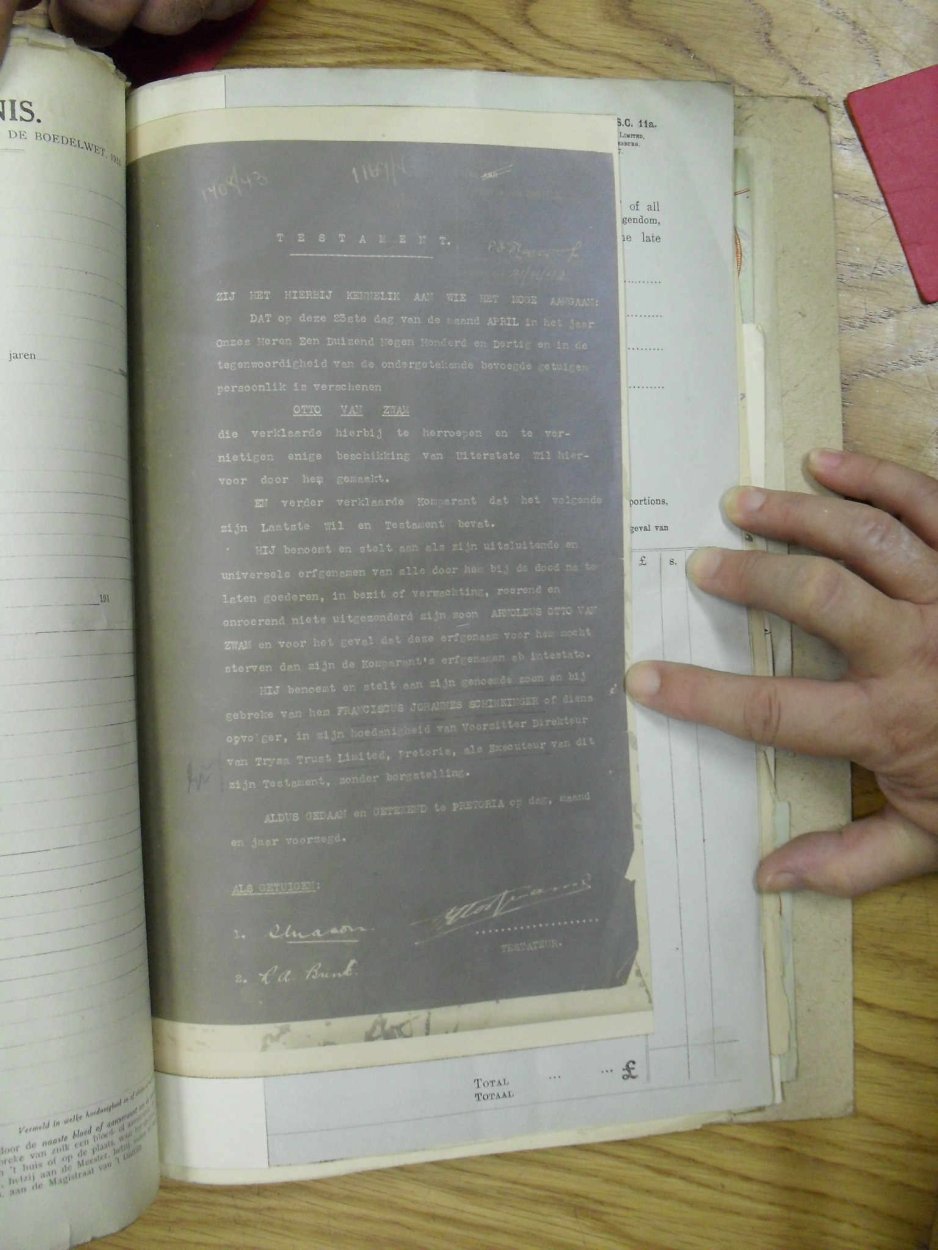 NIS.
DE BOEDELWET, 191
jaren
191
Vermeld in welke hoedanigheid
door de naaste bloed of aanverwant
breke van zulk een bloed- of
n 't huis of op de plaats, waar
, hetzij aan de Meester, hetzij
, aan de Magistraat van 't Distrikt
S.C. 11a.
LIMITED,
of all
gendom,
he late
portions,
geval van
£ s.
1404/43
T E S T A M E N T.
ZIJ HET HIERBIJ KENNELIK AAN WIE HET MOGE AANGAAN:
DAT op deze 23ste dag van de maand APRIL in het jaar
Onzes Heren Een Duizend Negen Honderd en Dertig en in de
tegenwoordigheid van de ondergetekende bevoegde getuigen
persoonlik is verschenen
OTTO VAN ZWAM
die verklaarde hierbij te herroepen en te ver-
nietigen enige beschikking van Uiterste Wil hier-
voor door hem gemaakt.
EN verder verklaarde Komparant dat het volgende
zijn Laatste Wil en Testament bevat.
HIJ benoemt en stelt aan als zijn uitsluitende en
universele erfgenamen van alle door hem bij de dood na te
laten goederen, in bezit of verwachting, roerend en
onroerend niets uitgezonderd zijn zoon ARNOLDUS OTTO VAN
ZWAM en voor het geval dat deze erfgenaam voor hem mocht
sterven dan zijn de Komparant's erfgenamen ab intestato.
HIJ benoemt en stelt aan zijn genoemde zoon en bij
gebreke van hem FRANCISCUS JOHANNES SCHIMKINGER of diens
opvolger, in zijn hoedanigheid van Voorzitter Direkteur
van Tryan Trust Limited, Pretoria, als Executeur van dit
zijn Testament, zonder borgstelling.
ALDUS GEDAAN en GETEKEND te PRETORIA op dag, maand
en jaar voorzegd.
ALS GETUIGEN:
1.
TESTATEUR.
2.
TOTAL ... ... £
TOTAAL